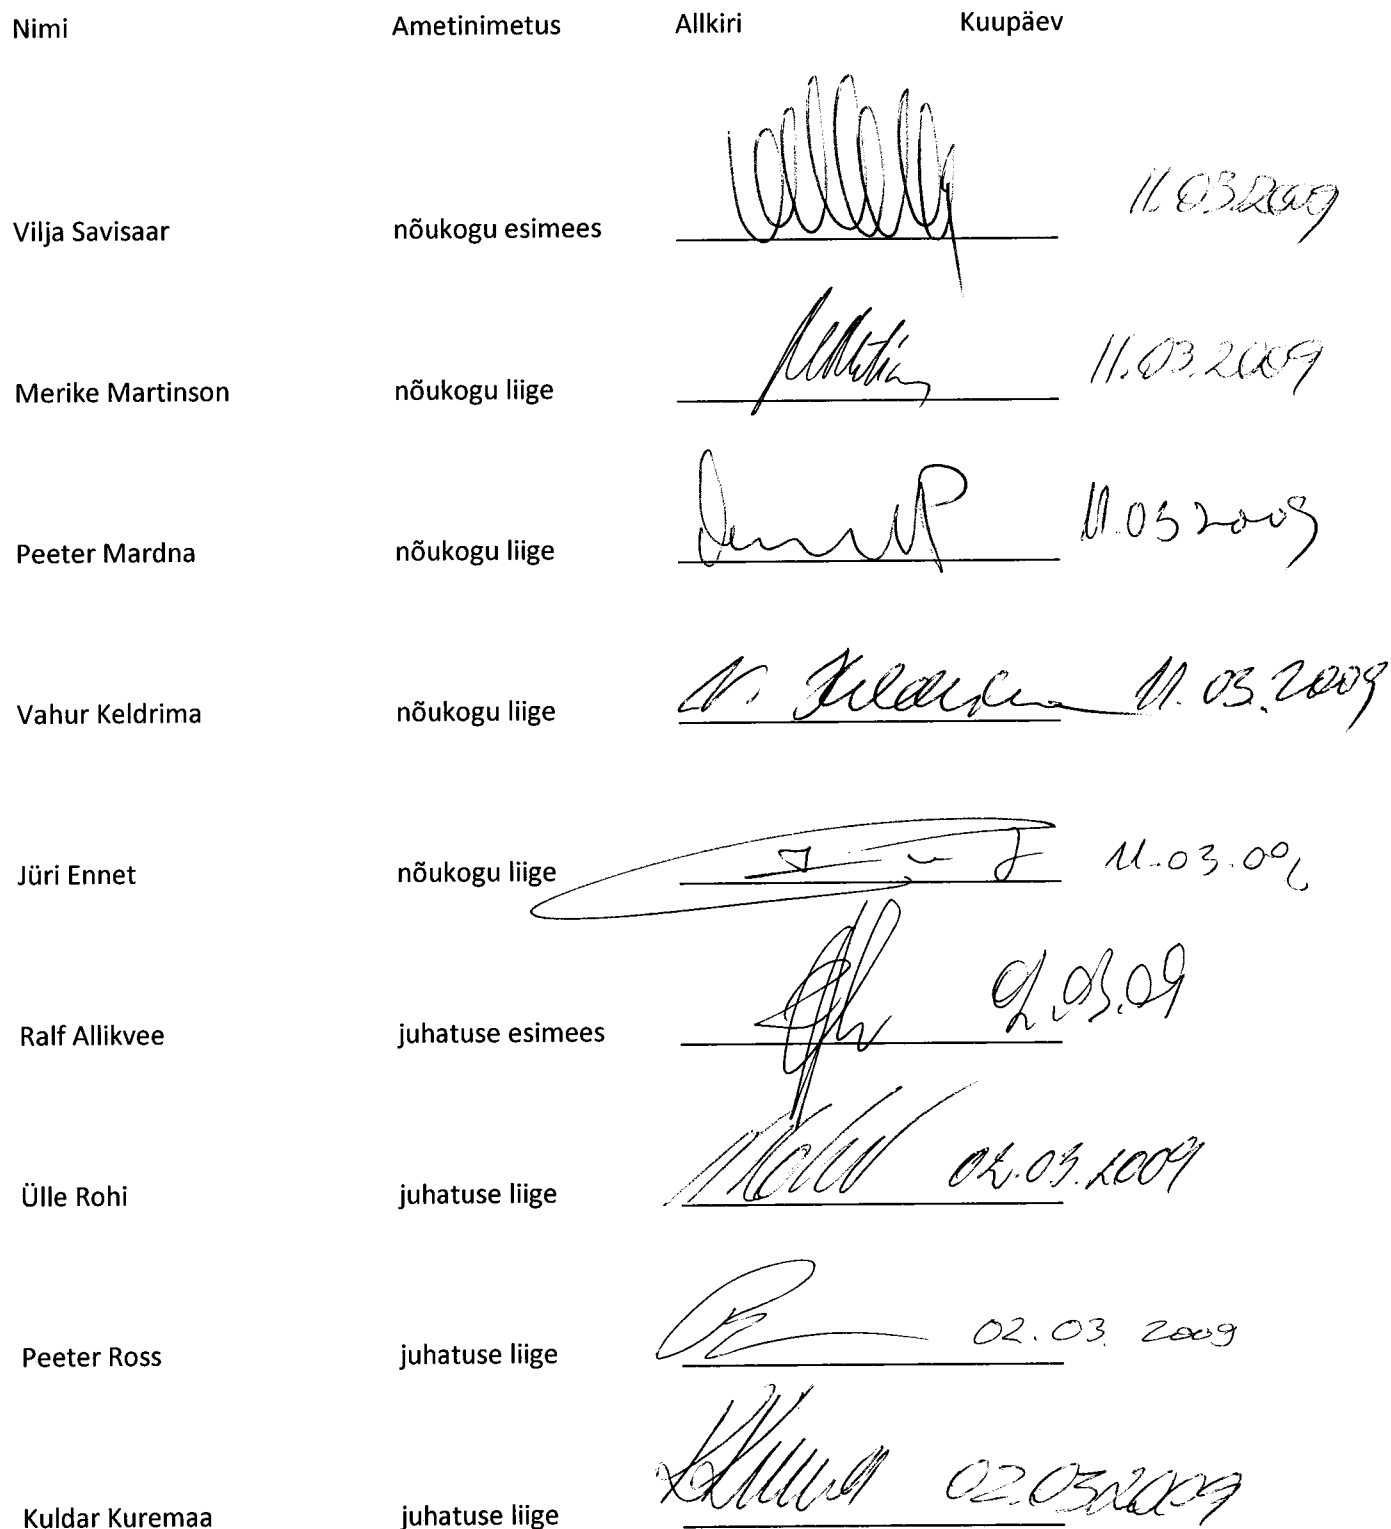 Nimi Ametinimetus Allkiri Kuupäev
Vilja Savisaar nõukogu esimees 11.03.2009
Merike Martinson nõukogu liige 11.03.2009
Peeter Mardna nõukogu liige 11.03 2009
Vahur Keldrima nõukogu liige V. Keldrima 11.03.2009
Jüri Ennet nõukogu liige 11.03.09
Ralf Allikvee juhatuse esimees 02.03.09
Ülle Rohi juhatuse liige 02.03.2009
Peeter Ross juhatuse liige 02.03. 2009
Kuldar Kuremaa juhatuse liige 02.03.2009